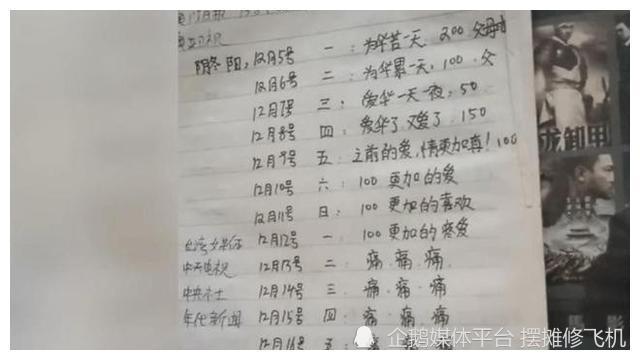 12月5号 一：为华苦一天 200 父母
12月6号 二：为华累一天，100 父
12月7号 三：爱华一天一夜，50
12月8号 四：爱华了又爱了，150
12月9号 五：之前的爱，情更加真！100
12月10号 六：100 更加的爱
12月11号 日：100 更加的喜欢
12月12号 一：100 更加的疼爱
中天电视 12月13号 二：痛 痛 痛
中央社 12月14号 三：痛 痛 痛
年代新闻 12月15号 四：痛 痛 痛
12月16号 五
龙卸甲
企鹅媒体平台 摆摊修飞机